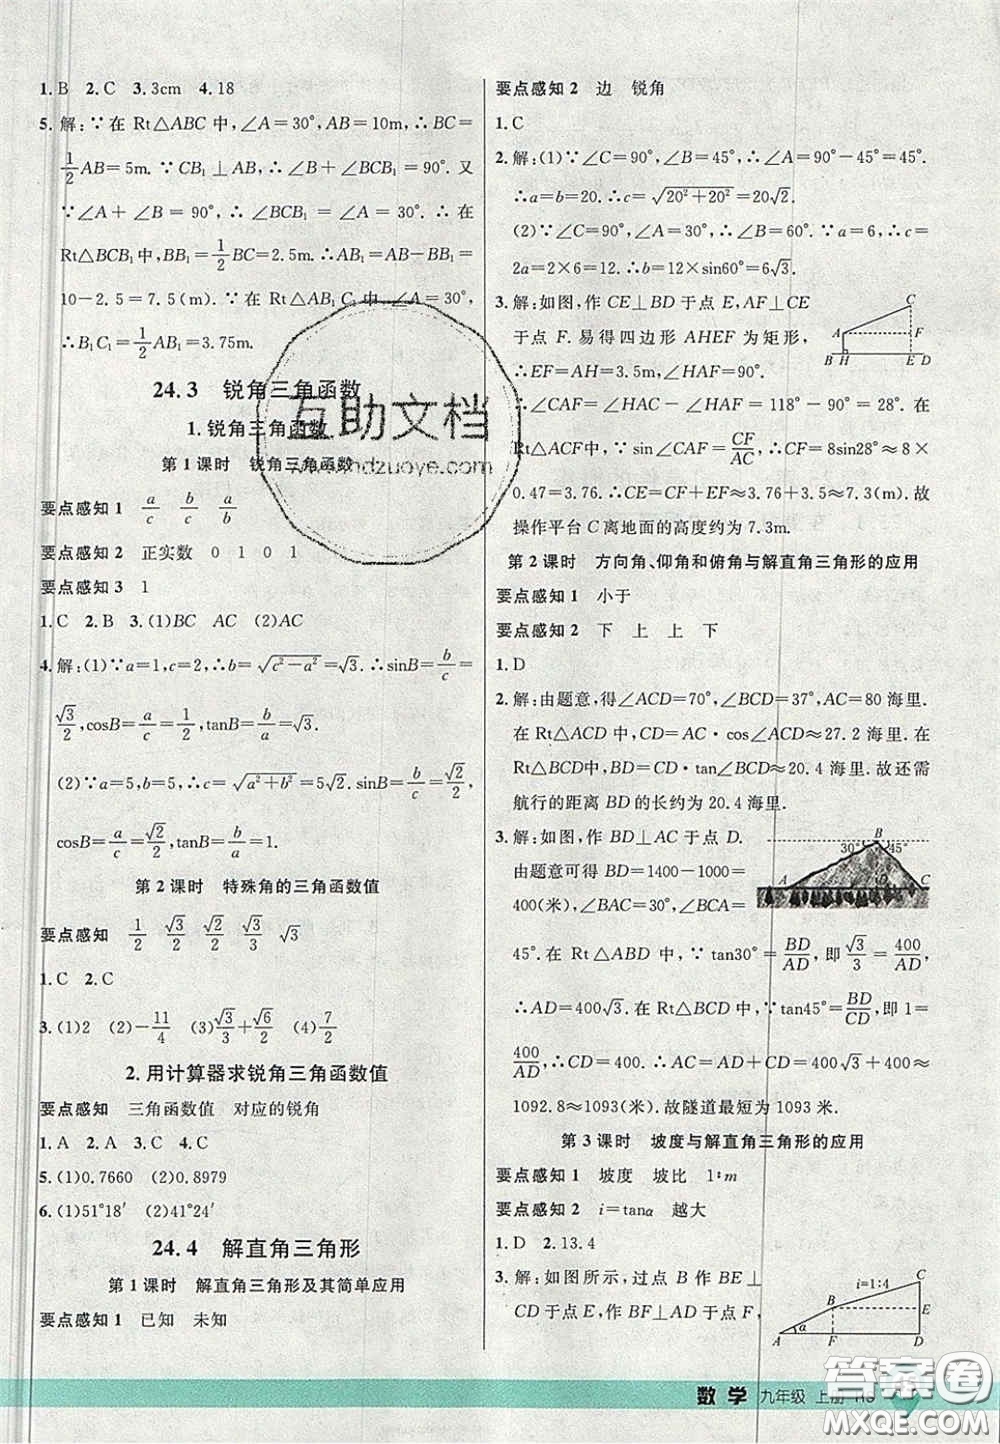 1.B 2.C 3.3cm 4.18
5.解:∵在Rt△ABC中,∠A=30°,AB=10m,∴BC=
1/2AB=5m.∵CB₁⊥AB,∴∠B+∠BCB₁=90°.又
∵∠A+∠B=90°,∴∠BCB₁=∠A=30°.∴在
Rt△BCB₁中,BB₁=1/2BC=2.5m.∴AB₁=AB-BB₁=
10-2.5=7.5(m).∵在Rt△AB₁C₁中,∠A=30°,
∴B₁C₁=1/2AB₁=3.75m.
24.3 锐角三角函数
1.锐角三角函数
第1课时 锐角三角函数
要点感知1 a/c b/c a/b
要点感知2 正实数 0 1 0 1
要点感知3 1
1.C 2.B 3.(1)BC AC (2)AC
4.解:(1)∵a=1,c=2,∴b=√(c²-a²)=√3.∴sinB=b/c=
√3/2,cosB=a/c=1/2,tanB=b/a=√3.
(2)∵a=5,b=5,∴c=√(a²+b²)=5√2.sinB=b/c=√2/2,
cosB=a/c=√2/2,tanB=b/a=1.
第2课时 特殊角的三角函数值
要点感知 1/2 √3/2 √2/2 √3/3 √3
1.C 2.C
3.(1)2 (2)-11/4 (3)√3/3+√6/2 (4)7/2
2.用计算器求锐角三角函数值
要点感知 三角函数值 对应的锐角
1.A 2.A 3.C 4.C
5.(1)0.7660 (2)0.8979
6.(1)51°18′ (2)41°24′
24.4 解直角三角形
第1课时 解直角三角形及其简单应用
要点感知1 已知 未知
要点感知2 边 锐角
1.C
2.解:(1)∵∠C=90°,∠B=45°,∴∠A=90°-45°=45°.
∴a=b=20.∴c=√(20²+20²)=20√2.
(2)∵∠C=90°,∠A=30°,∴∠B=60°.∵a=6,∴c=
2a=2×6=12.∴b=12×sin60°=6√3.
3.解:如图,作CE⊥BD于点E,AF⊥CE
于点F.易得四边形AHEF为矩形,
∴EF=AH=3.4m,∠HAF=90°.
∴∠CAF=∠HAC-∠HAF=118°-90°=28°.在
Rt△ACF中,∵sin∠CAF=CF/AC,∴CF=8sin28°≈8×
0.47=3.76.∴CE=CF+EF≈3.76+3.5≈7.3(m).故
操作平台C离地面的高度约为7.3m.
C
A F
B H E D
第2课时 方向角、仰角和俯角与解直角三角形的应用
要点感知1 小于
要点感知2 下 上 上 下
1.D
2.解:由题意,得∠ACD=70°,∠BCD=37°,AC=80海里.
在Rt△ACD中,CD=AC·cos∠ACD≈27.2海里.在
Rt△BCD中,BD=CD·tan∠BCD≈20.4海里.故还需
航行的距离BD的长约为20.4海里.
3.解:如图,作BD⊥AC于点D.
由题意可得BD=1400-1000=
400(米),∠BAC=30°,∠BCA=
45°.在Rt△ABD中,∵tan30°=BD/AD,即√3/3=400/AD,
∴AD=400√3.在Rt△BCD中,∵tan45°=BD/CD,即1=
400/CD,∴CD=400.∴AC=AD+CD=400√3+400≈
1092.8≈1093(米).故隧道最短为1093米.
B
30° 45°
A D C
第3课时 坡度与解直角三角形的应用
要点感知1 坡度 坡比 1∶m
要点感知2 i=tanα 越大
1.D 2.13.4
3.解:如图所示,过点B作BE⊥
CD于点E,作BF⊥AD于点F,
i=1:4 C
B E
A α F D
互助文档
www.hdzuoye.com
数学 九年级 上册 HS
答案圈
MXQE.COM